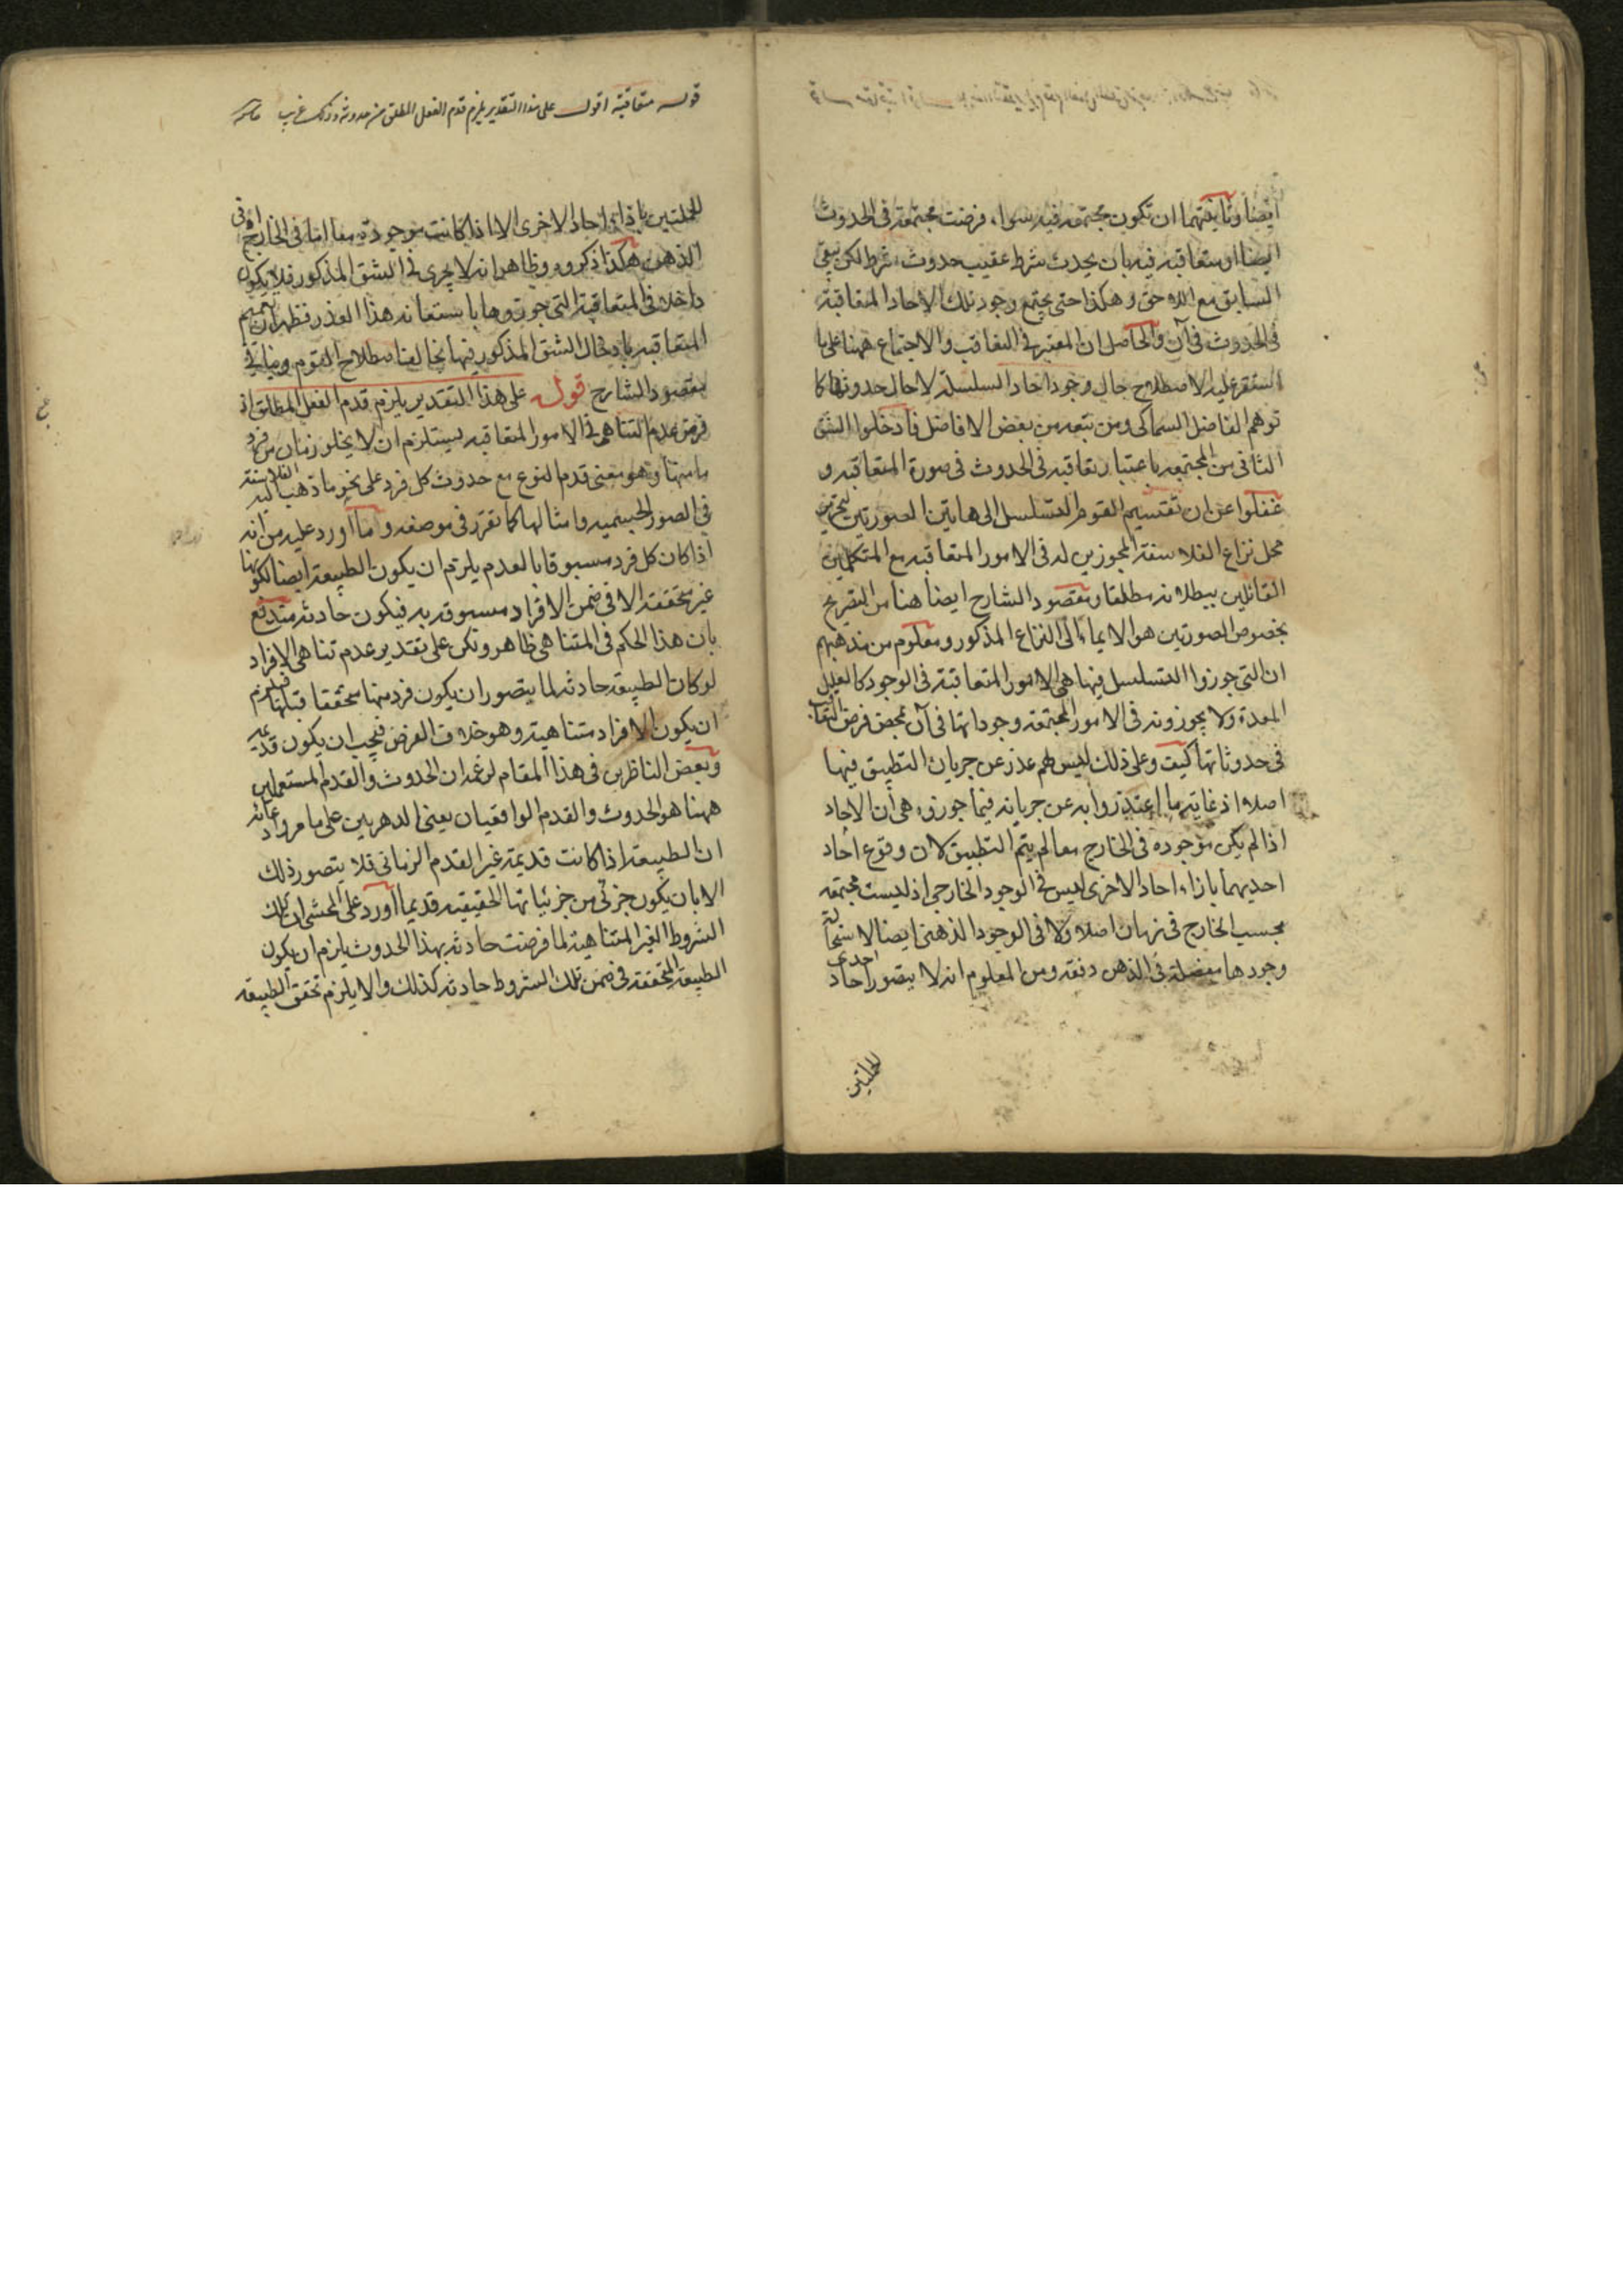 ايضا وثانيتهما ان تكون مجتمعة فيه سواء فرضت مجتمعة فى الحدوث
ايضا او متعاقبة فيه بان يحدث شرط عقيب حدوث شرط لكن يبقى
السابق مع اللاحق وهكذا حتى يجتمع وجود تلك الاحاد المتعاقبة
فى الحدوث فى آن والحاصل ان المعتبر فى التعاقب والاجتماع ههنا على ما
استقر عليه الاصطلاح حال وجود احاد السلسلة لا حال حدوثها كما
توهم الفاضل السماكى ومن تبعه من بعض الافاضل فادخلوا الشق
الثانى من المجتمعة باعتبار تعاقبه فى الحدوث فى صورة المتعاقبة و
غفلوا عن ان تقسيم القوم التسلسل الى هاتين الصورتين لتحرير
محل نزاع الفلاسفة المجوزين له فى الامور المتعاقبة مع المتكلمين
القائلين ببطلانه مطلقا ومقصود الشارح ايضا هنا من التصريح
بخصوص الصورتين هو الايماء الى النزاع المذكور ومعلوم من مذهبهم
ان التى جوزوا التسلسل فيها هى الامور المتعاقبة فى الوجود كالعلل
المعدة ولا يجوزونه فى الامور المجتمعة وجوداتها فى آن بمحض فرض التعاقب
فى حدوثاتها كيف وعلى ذلك ليس لهم عذر عن جريان التطبيق فيها
اصلا اذ غاية ما اعتذروا به عن جريانه فيما جوزوه هى أن الاحاد
اذا لم يكن موجودة فى الخارج معا لم يتم التطبيق لان وقوع احاد
احديهما بازاء احاد الاخرى ليس فى الوجود الخارجى اذ ليست مجتمعة
بحسب الخارج فى زمان اصلا ولا فى الوجود الذهنى ايضا لاستحالة
وجودها مفصلة فى الذهن دفعة ومن المعلوم انه لا يتصور احاد احدى
الجملتين
قوله متعاقبة اقول على هذا التقدير يلزم قدم الفعل المطلق مع حدوثه وذلك غريب
الجملتين بازاء احاد الاخرى الا اذا كانت موجودة معا اما فى الخارج او فى
الذهن هكذا ذكروه وظاهر انه لا يجرى فى الشق المذكور فلا يكون
داخلا فى المتعاقبة التى جوزوها باستعانة هذا العذر فظهر ان تعميم
المتعاقبة بادخال الشق المذكور فيها مخالف اصطلاح القوم ومناف
مقصود الشارح قوله على هذا التقدير يلزم قدم الفعل المطلق اذ
فرض عدم التناهى فى الامور المتعاقبة يستلزم ان لا يخلو زمان من فرد
ما منها وهو معنى قدم النوع مع حدوث كل فرد على نحو ما ذهب اليه الفلاسفة
فى الصور الجسمية وامثالها كما تقرر فى موضعه وما أورد عليه من انه
اذا كان كل فرد مسبوقا بالعدم يلزم ان يكون الطبيعة ايضا لكونها
غير متحققة الا فى ضمن الافراد مسبوقة به فيكون حادثة مندفع
بان هذا الحكم فى المتناهى ظاهر ولكن على تقدير عدم تناهى الافراد
لو كان الطبيعة حادثة لما يتصور ان يكون فرد منها متحققا قبلها فيلزم
ان يكون الافراد متناهية وهو خلاف الفرض فيجب ان يكون قديمة
وبعض الناظرين فى هذا المقام لزعمه ان الحدوث والقدم المستعملين
ههنا هو الحدوث والقدم الواقعيان يعنى الدهريين على ما مر
ان الطبيعة اذا كانت قديمة غير القدم الزمانى فلا يتصور ذلك
الا بان يكون جزئى من جزئياتها الحقيقية قديما أورد على المحشى ان تلك
الشروط الغير المتناهية لما فرضت حادثة بهذا الحدوث يلزم ان يكون
الطبيعة المتحققة فى ضمن تلك الشروط حادثة كذلك والا يلزم تحقق الطبيعة